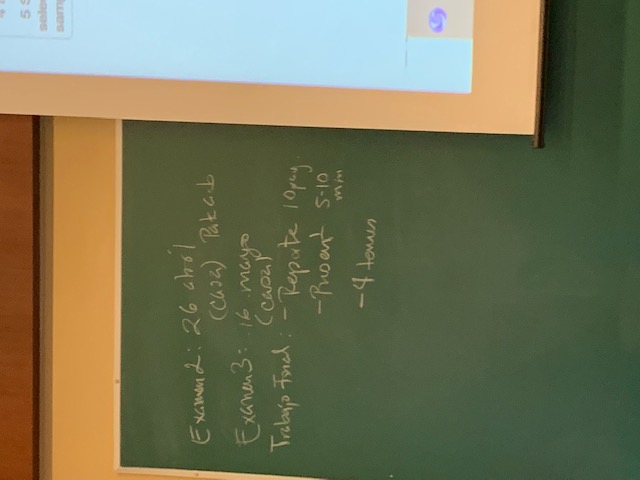 Examen 2: 26 abril
(casa)
Examen 3: 16 mayo
(casa)
Trabajo Final: - Reporte 10 pag.
- Present 5-10
min
- 4 temas
5 S
sele
sam